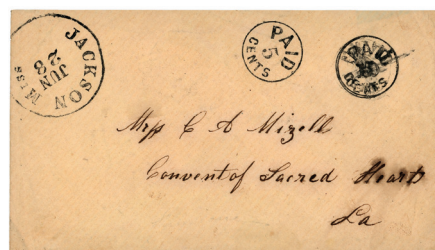 JACKSON
JUN
28
MISS
PAID
5
CENTS
PAID
10
CENTS
Mrss C A Mizell
Convent of Sacred Hearts
La